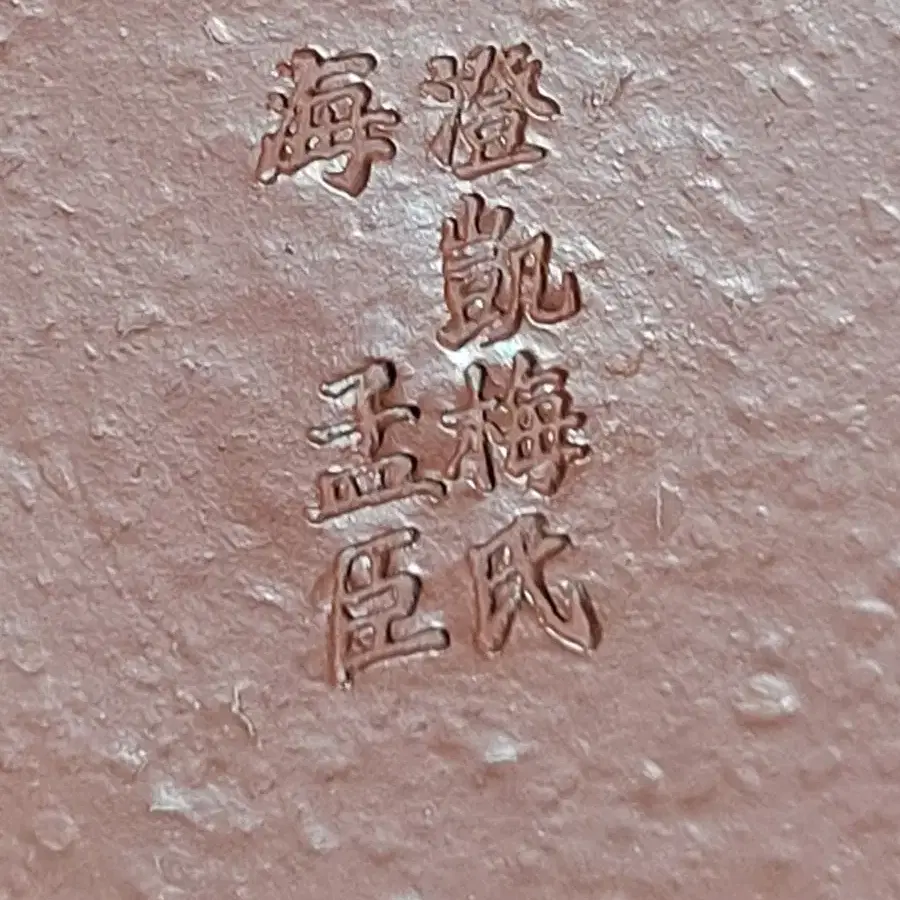 澄凱梅氏
海 孟臣